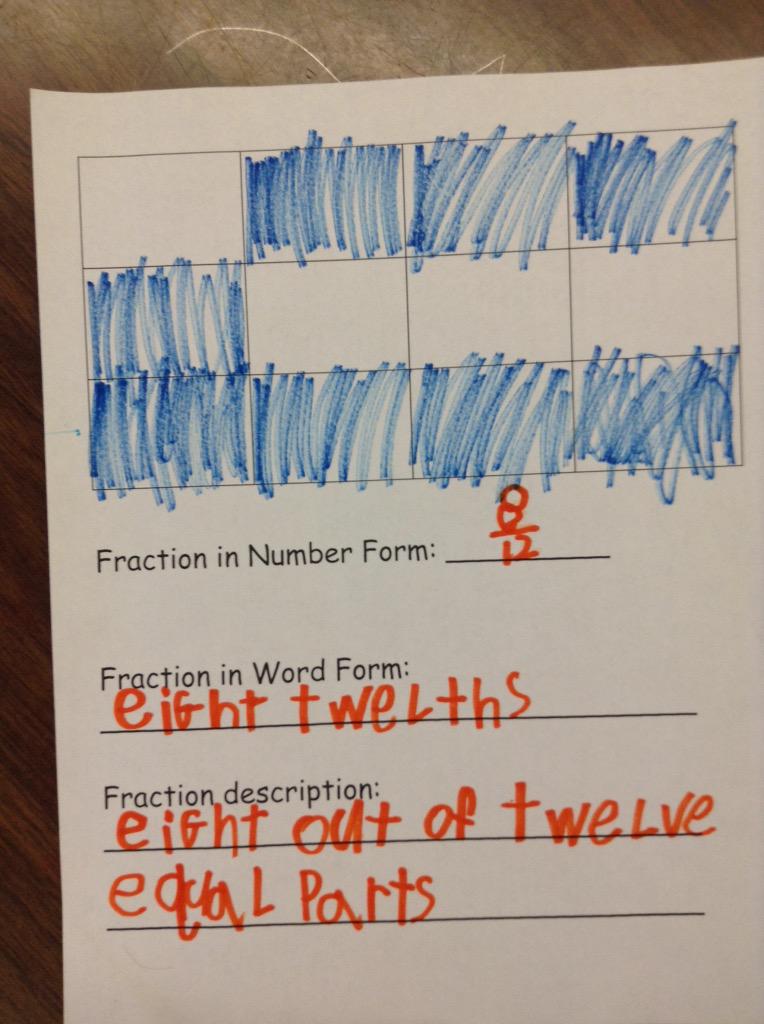 Fraction in Number Form: 8/12
Fraction in Word Form:
eight twelths
Fraction description:
eight out of twelve
equal Parts